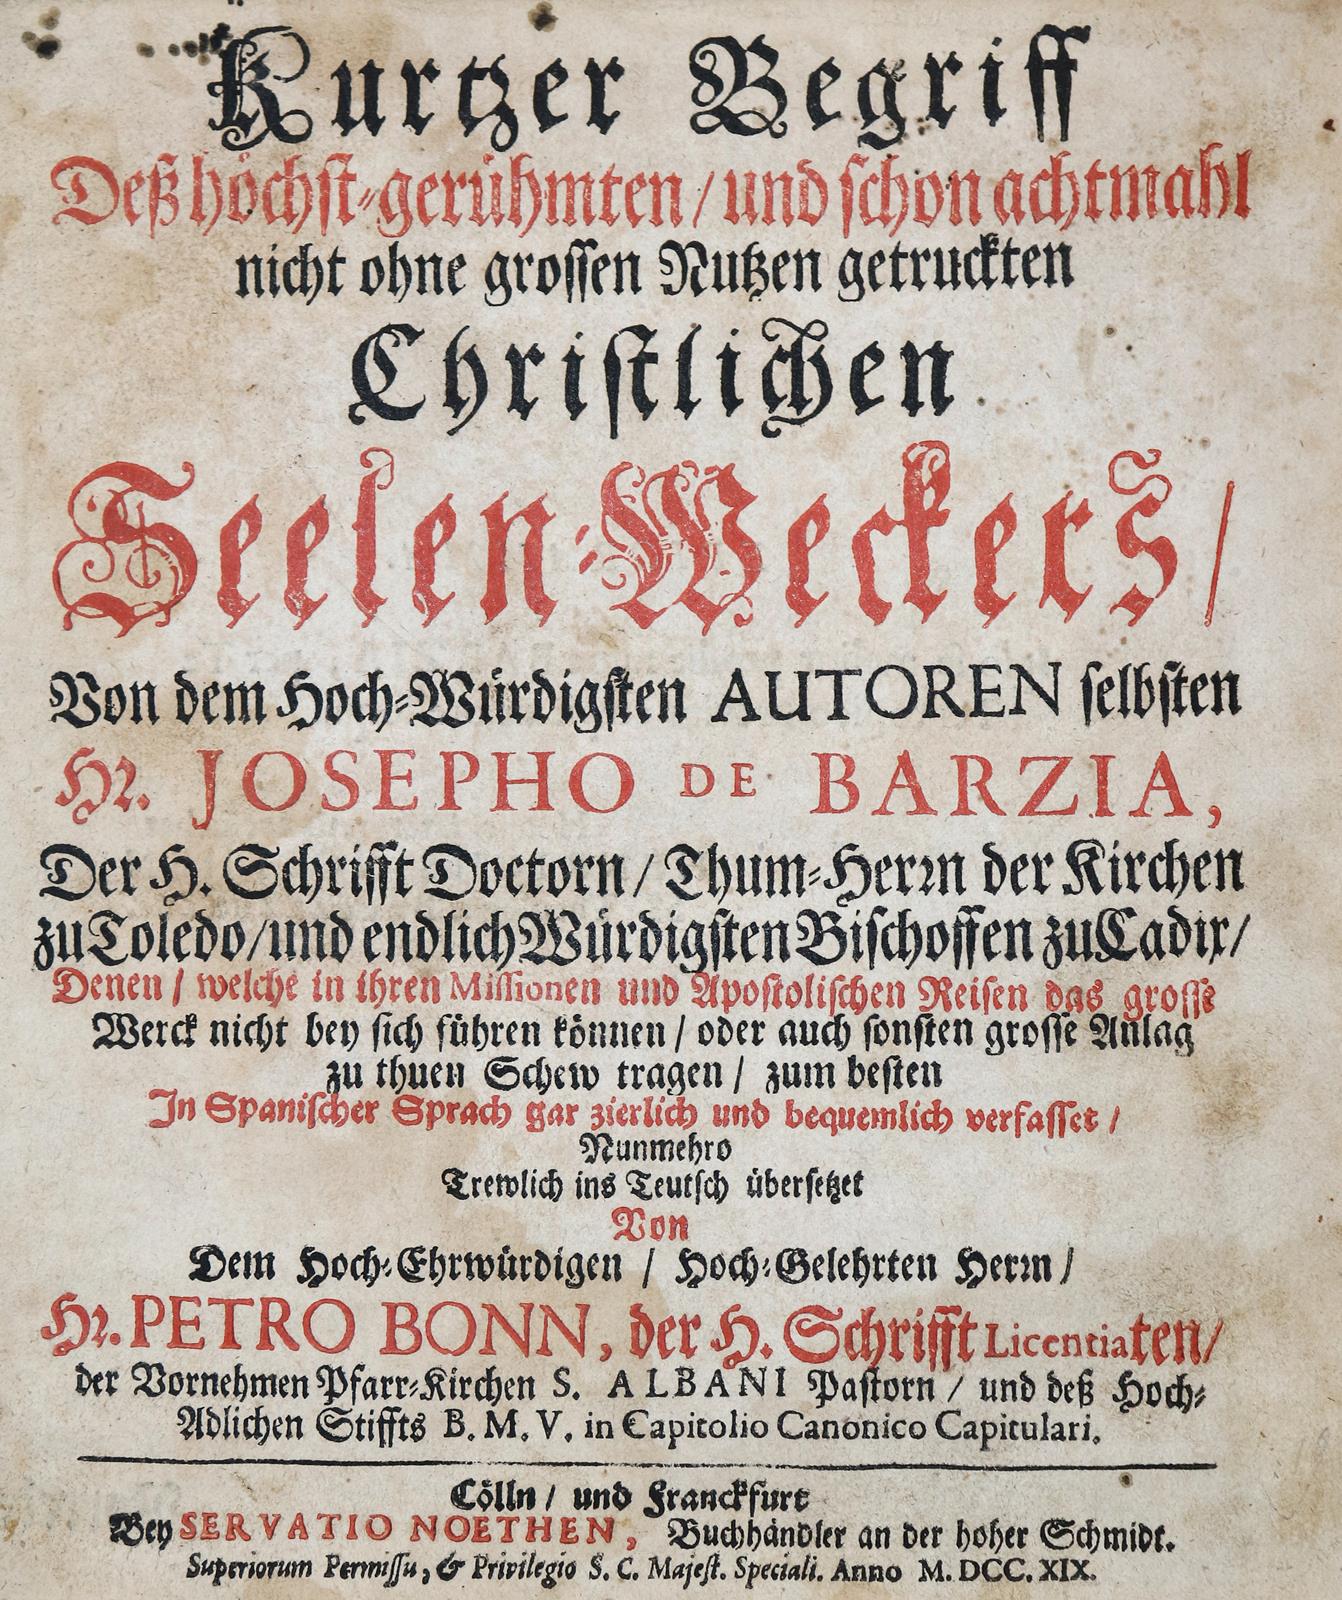 Kurtzer Begriff
Deß höchst-gerühmten / und schon achtmahl
nicht ohne grossen Nutzen getruckten
Christlichen
Seelen-Weckers /
Von dem Hoch-Würdigsten AUTOREN selbsten
Hr. JOSEPHO DE BARZIA,
Der H. Schrifft Doctorn / Thum-Herrn der Kirchen
zu Toledo / und endlich Würdigsten Bischoffen zu Cadix /
Denen / welche in ihren Missionen und Apostolischen Reisen das grosse
Werck nicht bey sich führen können / oder auch sonsten grosse Anlag
zu thuen Schew tragen / zum besten
In Spanischer Sprach gar zierlich und bequemlich verfasset /
Nunmehro
Trewlich ins Teutsch übersetzet
Von
Dem Hoch-Ehrwürdigen / Hoch-Gelehrten Herrn /
Hr. PETRO BONN, der H. Schrifft Licentiaten /
der Vornehmen Pfarr-Kirchen S. ALBANI Pastorn / und deß Hoch-
Adlichen Stiffts B. M. V. in Capitolio Canonico Capitulari.
Cölln / und Franckfurt
Bey SERVATIO NOETHEN, Buchhändler an der hoher Schmidt.
Superiorum Permissu, & Privilegio S. C. Majest. Speciali. Anno M. DCC. XIX.